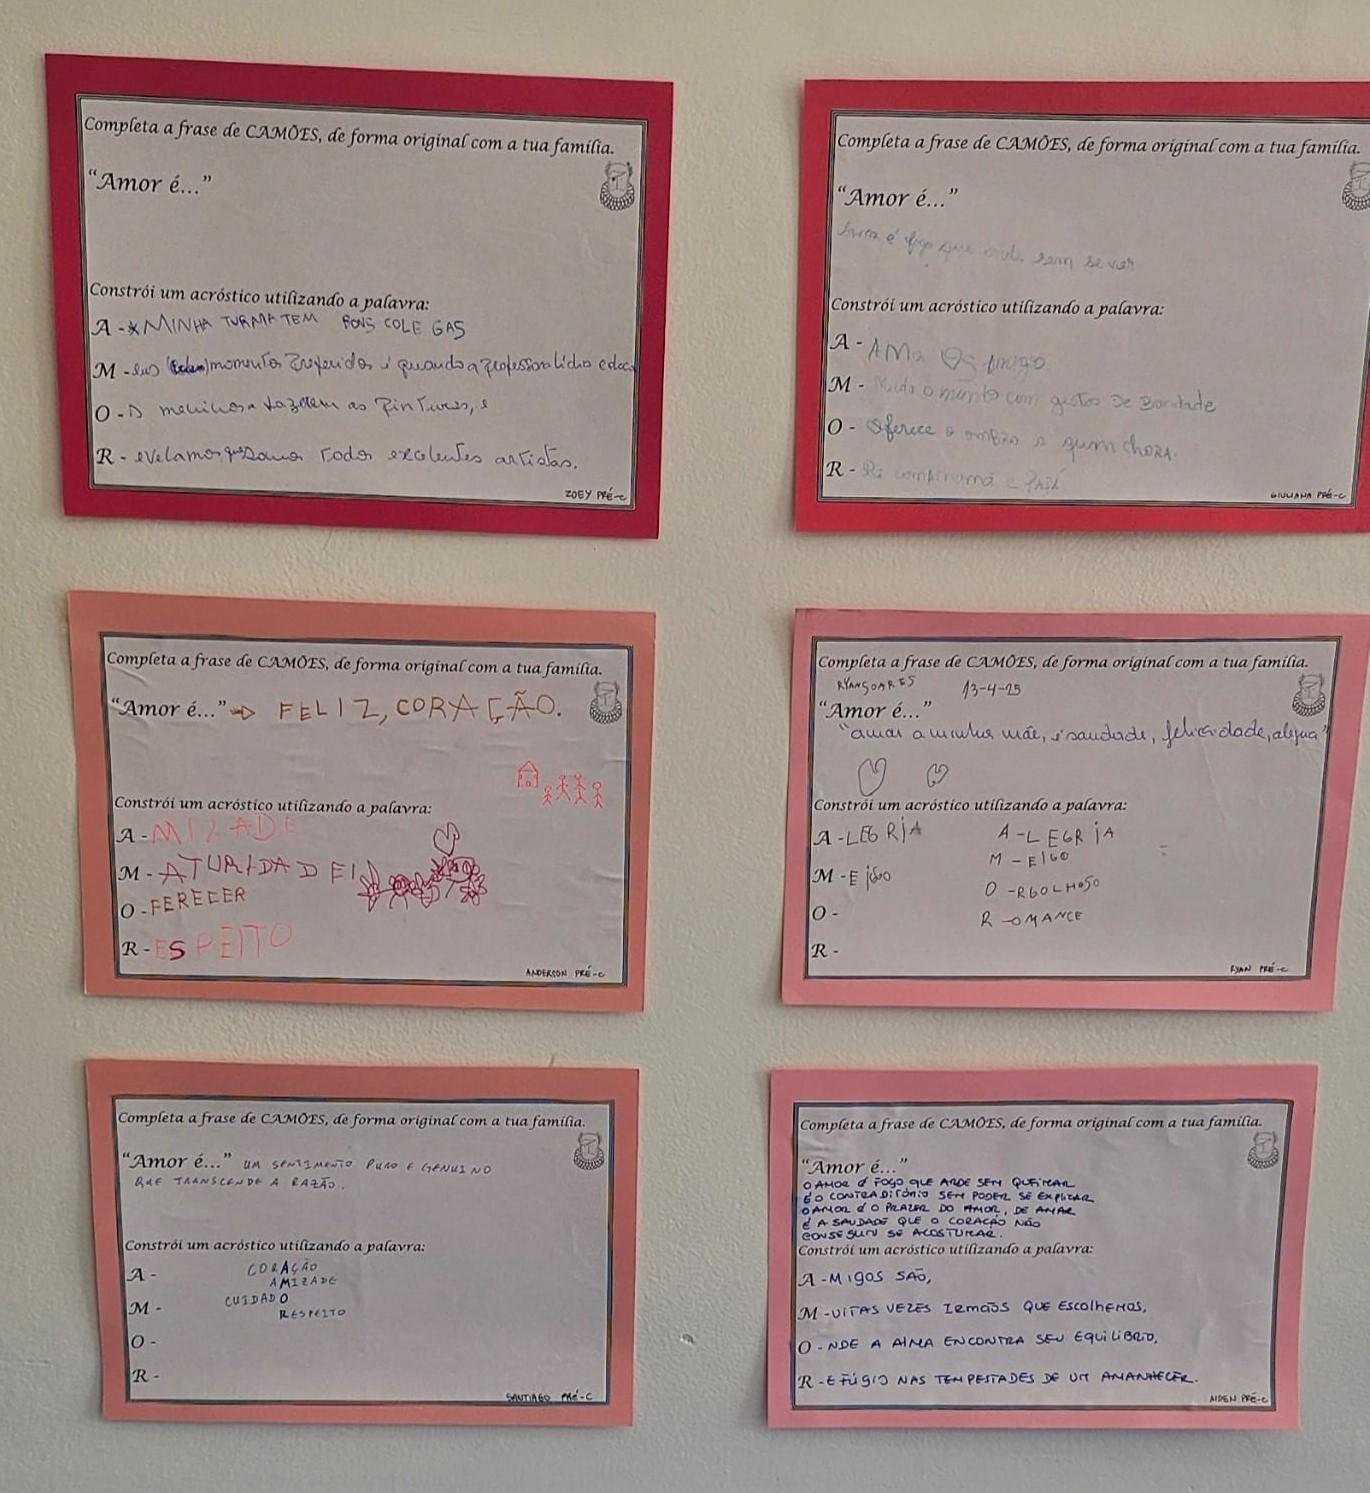 Completa a frase de CAMÕES, de forma original com a tua família.
“Amor é...”
Constrói um acróstico utilizando a palavra:
A - *MINHA TURMA TEM BONS COLEGAS
M - eus momentos preferidos é quando a professora Lídia e
O - s meninos a fazerem as pinturas, e
R - evelamos que somos todos excelentes artistas.
ZOEY PRÉ-C
Completa a frase de CAMÕES, de forma original com a tua família.
“Amor é...”
Amor é fogo que arde sem se ver
Constrói um acróstico utilizando a palavra:
A - AMA Os Amigo
M - Muda o mundo com gestos De Bondade
O - Oferece o ombro a quem chora.
R - Ri com
GIULIANA PRÉ-C
Completa a frase de CAMÕES, de forma original com a tua família.
“Amor é...” FELIZ, CORAÇÃO.
Constrói um acróstico utilizando a palavra:
A - MIZADE
M - ATURIDADE
O - FERECER
R - ESPEITO
ANDERSON PRÉ-C
Completa a frase de CAMÕES, de forma original com a tua família.
RYAN SOARES 13-4-25
“Amor é...”
“amar a minha mãe, é saudade, felicidade, alegria”
Constrói um acróstico utilizando a palavra:
A - LEGRIA A - LEGRIA
M - Eigo M - EIGO
O - O - RGOLHOSO
R - R - OMANCE
RYAN PRÉ-C
Completa a frase de CAMÕES, de forma original com a tua família.
“Amor é...” UM SENTIMENTO PURO E GENUINO
QUE TRANSCENDE A RAZÃO.
Constrói um acróstico utilizando a palavra:
A - CORAÇÃO
AMIZADE
M - CUIDADO
RESPEITO
O -
R -
SANTIAGO PRÉ-C
Completa a frase de CAMÕES, de forma original com a tua família.
“Amor é...”
O AMOR É FOGO QUE ARDE SEM QUEIMAR
É O CONTRADITÓRIO SEM PODER SE EXPLICAR
O AMOR É O PRAZER DO AMOR, DE AMAR
É A SAUDADE QUE O CORAÇÃO NÃO
CONSEGUIU SE ACOSTUMAR.
Constrói um acróstico utilizando a palavra:
A - MIGOS SÃO,
M - UITAS VEZES IRMÃOS QUE ESCOLHEMOS,
O - NDE A ALMA ENCONTRA SEU EQUILIBRIO,
R - EFÚGIO NAS TEMPESTADES DE UM AMANHECER.
AIDEN PRÉ-C